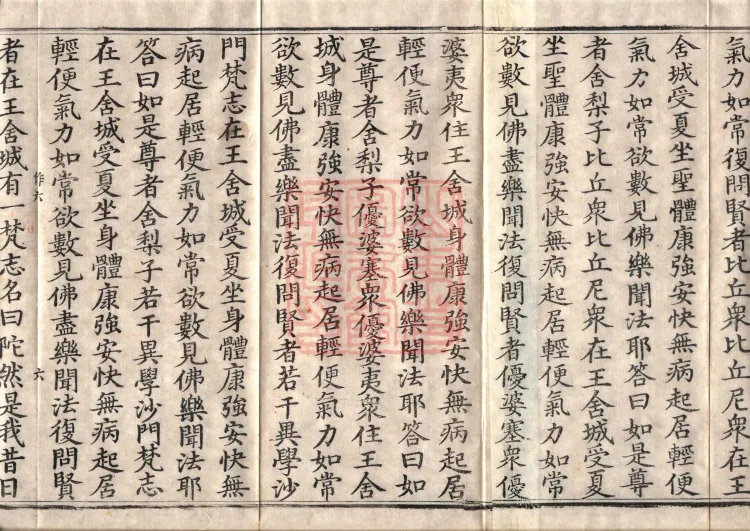 氣力如常復問賢者比丘衆比丘尼衆在王
舍城受夏坐聖體康強安快無病起居輕便
氣力如常欲數見佛樂聞法耶答曰如是尊
者舍梨子比丘衆比丘尼衆在王舍城受夏
坐聖體康強安快無病起居輕便氣力如常
欲數見佛盡樂聞法復問賢者優婆塞衆優
婆夷衆住王舍城身體康強安快無病起居
輕便氣力如常欲數見佛樂聞法耶答曰如
是尊者舍梨子優婆塞衆優婆夷衆住王舍
城身體康強安快無病起居輕便氣力如常
欲數見佛盡樂聞法復問賢者若干異學沙
門梵志在王舍城受夏坐身體康強安快無
病起居輕便氣力如常欲數見佛樂聞法耶
答曰如是尊者舍梨子若干異學沙門梵志
在王舍城受夏坐身體康強安快無病起居
輕便氣力如常欲數見佛盡樂聞法復問賢
作六 六
者在王舍城有一梵志名曰陀然是我昔日